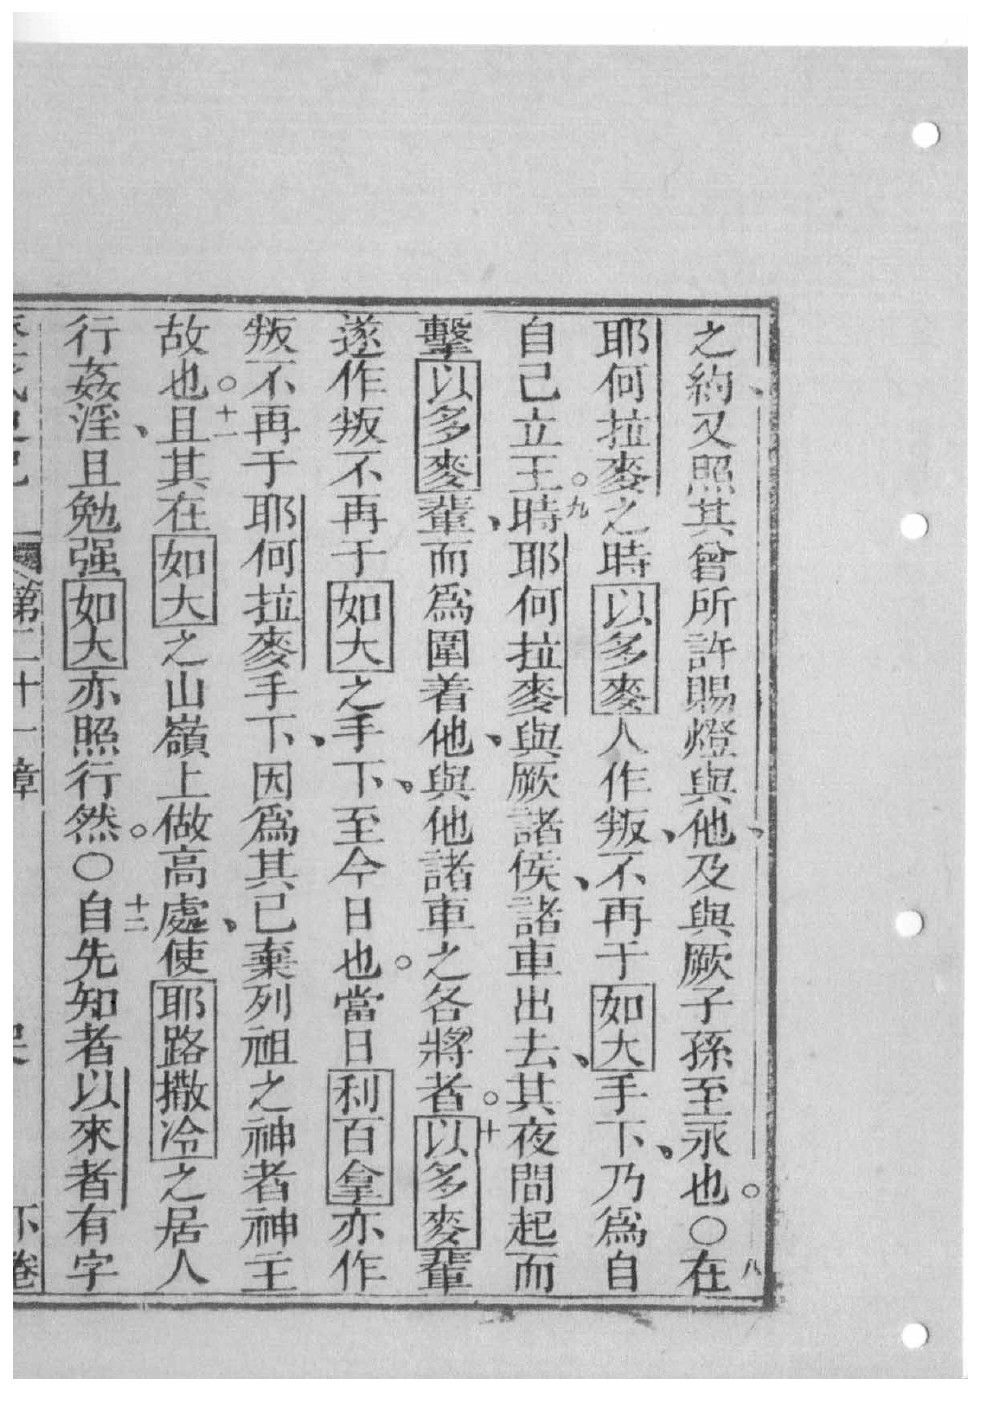 之約又照其曾所許賜燈與他及與厥子孫至永也○在八
耶何拉麥之時以多麥人作叛不再于如大手下乃爲自
自己立王九時耶何拉麥與厥諸侯諸車出去其夜間起而
擊以多麥輩而爲圍着他與他諸車之各將者十以多麥輩
遂作叛不再于如大之手下至今日也當日利百拿亦作
叛不再于耶何拉麥手下因爲其已棄列祖之神者神主
故也十一且其在如大之山嶺上做高處使耶路撒冷之居人
行姦淫且勉强如大亦照行然○十二自先知者以來者有字
第二十一章 下卷